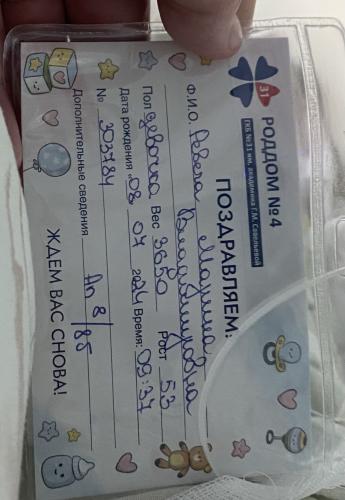 31
РОДДОМ №4
ГКБ №31 им. академика Г.М. Савельевой
ПОЗДРАВЛЯЕМ:
Ф.И.О. Марина
Владимировна
Пол девочка Вес 3680 Рост 53
Дата рождения 08 07 2024 Время: 09:37
№ 393784
Дополнительные сведения Ап 8/8б
ЖДЕМ ВАС СНОВА!